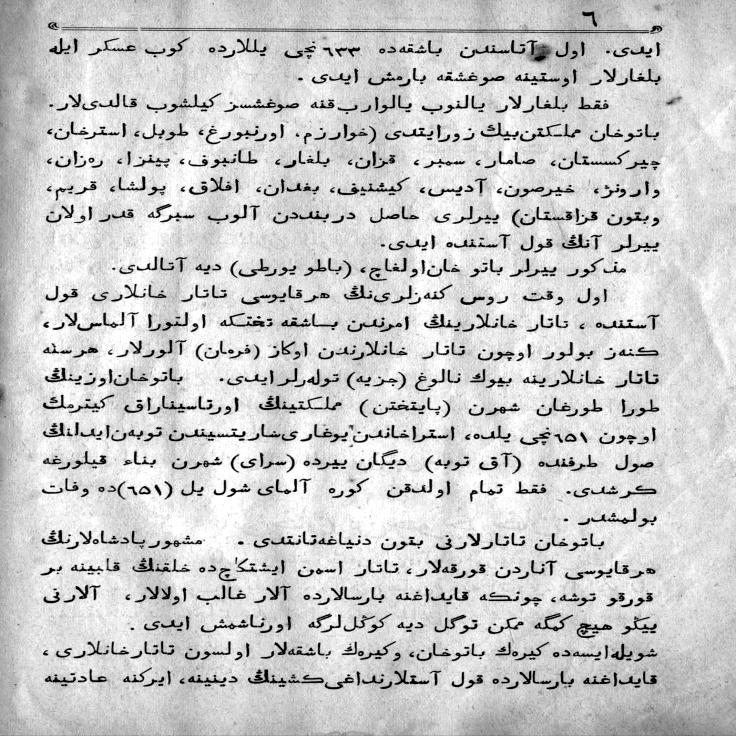 ٦
ایدی. اول آتاسندن باشقه‌ده ٦٣٣نچی یللارده کوب عسکر ایله
بلغارلار اوستینه صوغشقه بارمش ایدی .
فقط بلغارلار یالنوب یالوارب‌قنه صوغشسز کیلشوب قالدی‌لار.
باتوخان مملکتن‌بیک زورایتدی (خوارزم، اورنبورغ، طوبل، استرخان،
چیرکسستان، صامار، سمبر، قزان، بلغار، طانبوف، پینزا، ره‌زان،
وارونژ، خیرصون، آدیس، کیشنیف، بغدان، افلاق، پولشا، قریم،
وبتون قزاقستان) ییرلری حاصل دربنددن آلوب سبرگه قدر اولان
ییرلر آنڭ قول آستنده ایدی.
مذکور ییرلر باتو خان‌اولغاچ، (باطو یورطی) دیه آتالدی.
اول وقت روس کنه‌زلری‌نڭ هرقایوسی تاتار خانلاری قول
آستنده ، تاتار خانلارینڭ امرندن بساشقه تختکه اولتورا آلماس‌لار،
کنه‌ز بولور اوچون تاتار خانلارندن اوکاز (فرمان) آلورلار، هرسنه
تاتار خانلارینه بیوك نالوغ (جزیه) توله‌رلر‌ایدی. باتوخان‌اوزینڭ
طورا طورغان شهرن (پایتختن) مملکتینڭ اورتاسیناراق کیترمك
اوچون ٦٥١نچی یلده، استراخاندن یوغاری‌ساریتسیندن توبه‌ن‌ایدلنڭ
صول طرفنده (آق توبه) دیگان ییرده (سرای) شهرن بناء قیلورغه
کرشدی. فقط تمام اولدقن کوره آلمای شول یل (٦٥١)ده وفات
بولمشدر .
باتوخان تاتارلارنی بتون دنیاغه‌تانتدی . مشهور پادشاه‌لارنڭ
هرقایوسی آناردن قورقه‌لار، تاتار اسمن ایشتکاچ‌ده خلقنڭ قلبینه بر
قورقو توشه، چونکه قایداغنه بارسالارده آلار غالب اولالار، آلارنی
ییڭو هیچ کمگه ممکن توگل دیه کوڭل‌لرگه اورناشمش ایدی .
شویله‌ایسه‌ده کیره‌ك باتوخان، وکیره‌ك باشقه‌لار اولسون تاتارخانلاری ،
قایداغنه بارسالارده قول آستلارنداغی‌کشینڭ دینینه، ایرکنه عادتینه